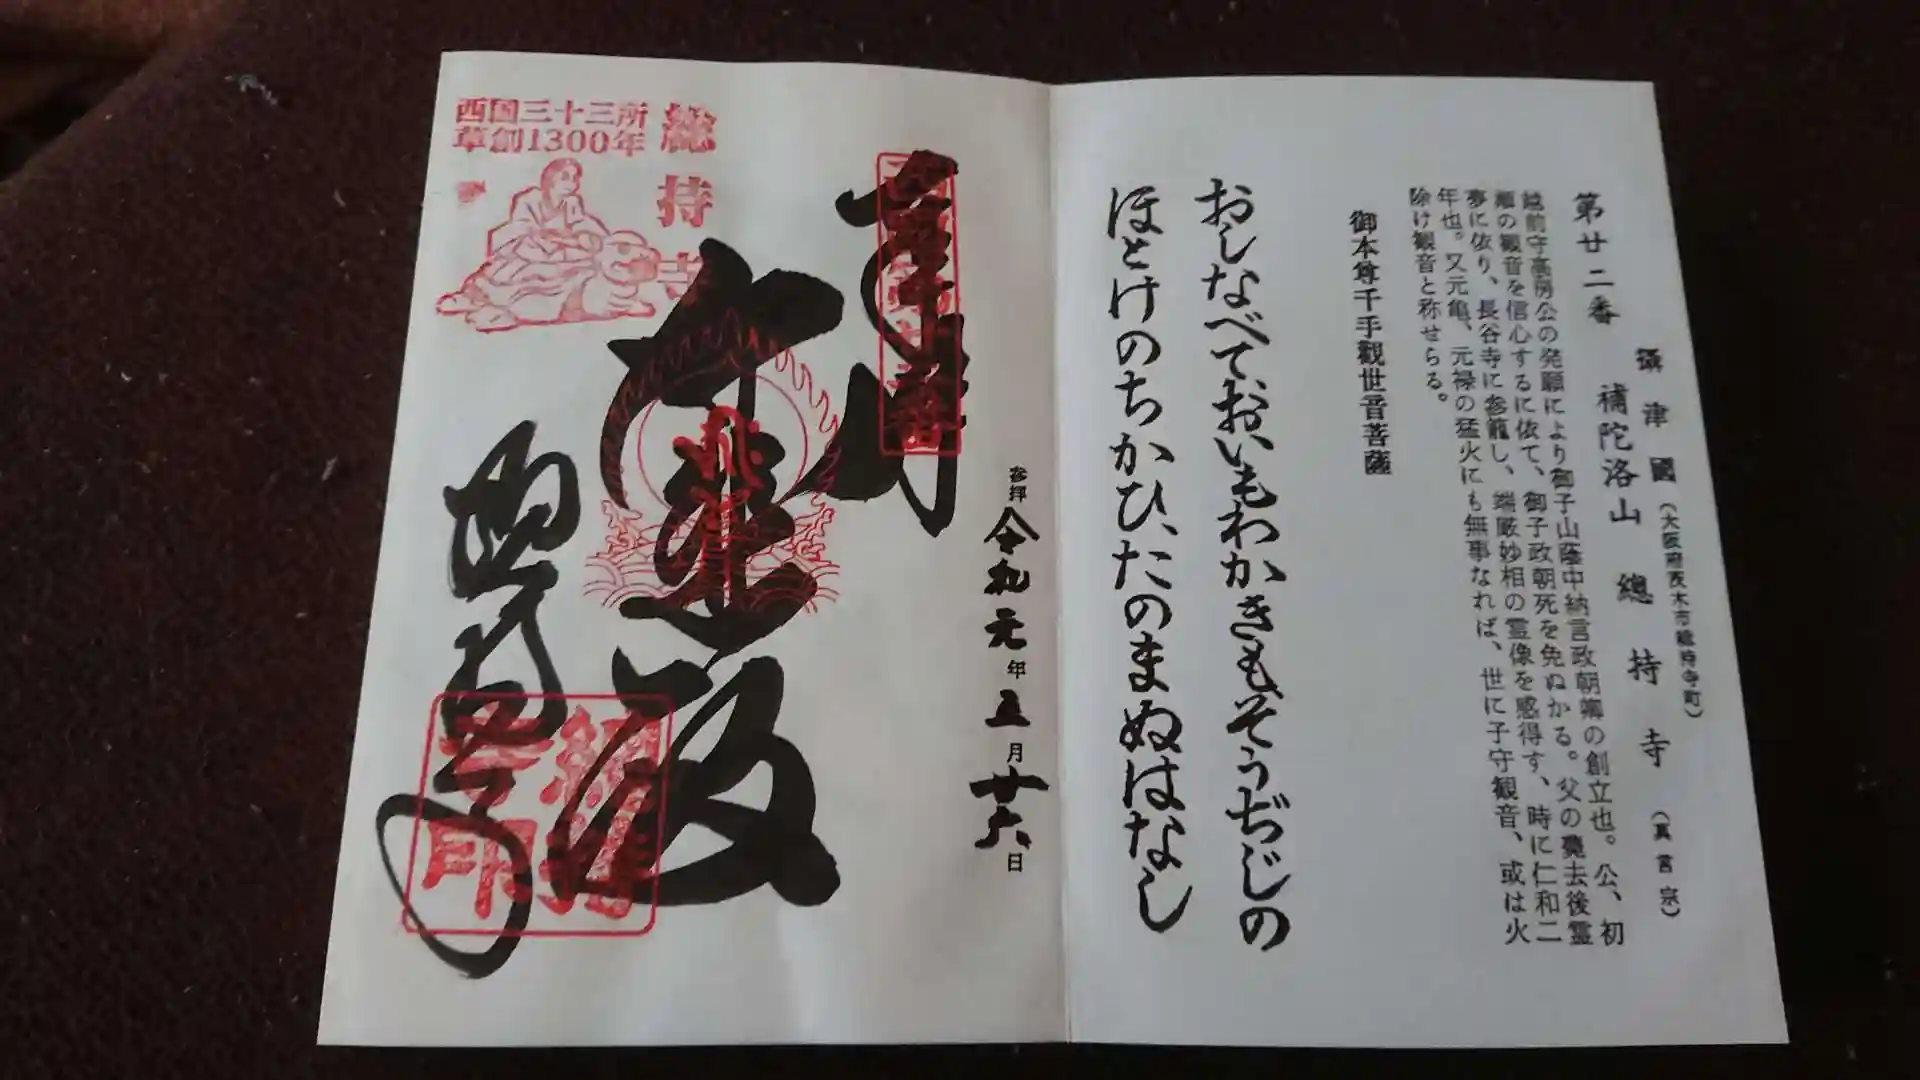 第廿二番
攝津國(大阪府茨木市総持寺町)
補陀洛山 總持寺(真言宗)
越前守高房公の発願により御子山蔭中納言政朝卿の創立也。公、初
瀬の観音を信心するに依て、御子政朝死を免ぬかる。父の薨去後霊
夢に依り、長谷寺に参籠し、端厳妙相の霊像を感得す、時に仁和二
年也。又元亀、元禄の猛火にも無事なれば、世に子守観音、或は火
除け観音と称せらる。
御本尊千手觀世音菩薩
おしなべておいもわかきもそうぢじの
ほとけのちかひ、たのまぬはなし
参拝令和元年五月廿六日
奉拝
大悲殿
総持寺
西国三十三所
草創1300年
総持寺
総持
寺印